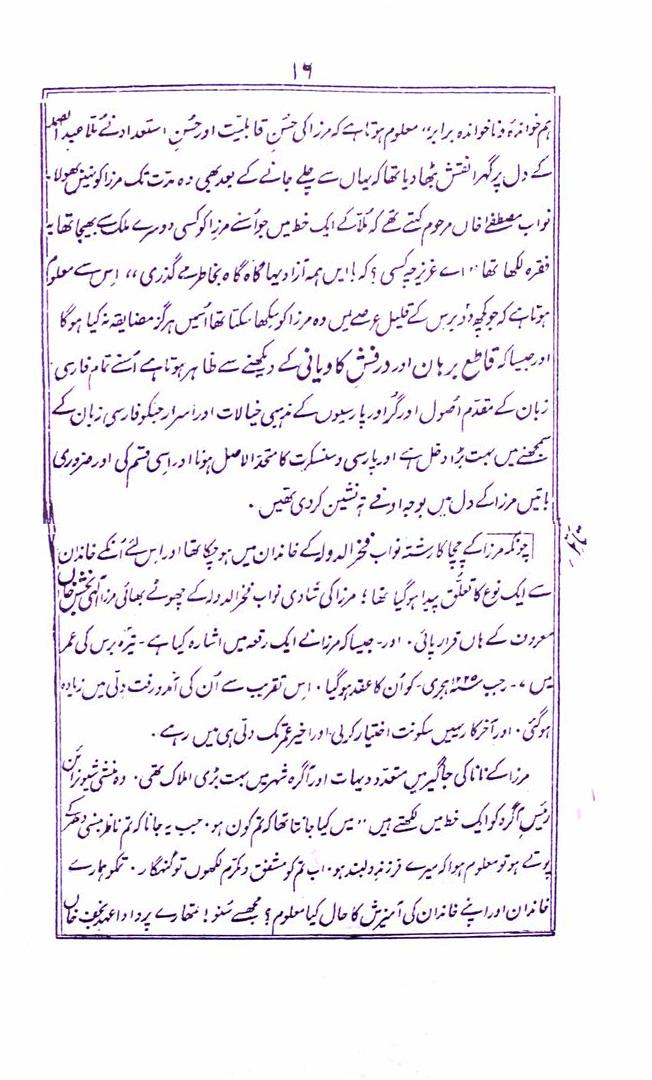 ۱۶
ہم خواندۂ و ناخواندہ برابر" معلوم ہوتا ہے کہ مرزا کی حُسنِ قابلیت اور حُسنِ استعداد نے مُلّا عبد الصمد
کے دل پر گہرا نقش بٹھا دیا تھا کہ یہاں سے چلے جانے کے بعد بھی وہ مدّت تک مرزا کو نہیں بھولا۔
نواب مصطفےٰ خاں مرحوم کہتے تھے کہ مُلّا کے ایک خط میں جو اُسنے مرزا کو کسی دوسرے ملک سے بھیجا تھا یہ
فقرہ لکھا تھا "اے عزیز چہ کسی؟ کہ با این ہمہ آزادیہا گاہ گاہ بخاطر مے گذری"، اِس سے معلوم
ہوتا ہے کہ جو کچھ دو برس کے قلیل عرصے میں وہ مرزا کو سکھا سکتا تھا اُسمیں ہرگز مضایقہ نہ کیا ہوگا
اور جیسا کہ قاطع برہان اور درفش کاویانی کے دیکھنے سے ظاہر ہوتا ہے اُسنے تمام فارسی
زبان کے مقدّم اُصول اور گُر اور پارسیوں کے مذہبی خیالات اور اسرار جنکو فارسی زبان کے
سمجھنے میں بہت بڑا دخل ہے اور پارسی و سنسکرت کا متحد الاصل ہونا اور اسی قسم کی اور ضروری
باتیں مرزا کے دل میں بوجہ اوفےٰ تہ نشین کر دی تھیں ۔
چونکہ مرزا کے چچا کا رشتہ نواب فخر الدولہ کے خاندان میں ہو چکا تھا اور اس لئے اُنکے خاندان
سے ایک نوع کا تعلّق پیدا ہو گیا تھا؛ مرزا کی شادی نواب فخر الدولہ کے چھوٹے بھائی مرزا الٰہی بخش خاں
معروف کے ہاں قرار پائی ۔ اور۔ جیسا کہ مرزا نے ایک رقعہ میں اشارہ کیا ہے۔ تیرہ برس کی عمر
میں ۷۔ رجب ۱۲۲۵ ہجری۔ کو اُن کا عقد ہو گیا ۔ اِس تقریب سے اُن کی آمدورفت دِلّی میں زیادہ
ہوگئی ۔ اور آخر کار یہیں سکونت اختیار کرلی اور اخیر عمر تک دلی ہی میں رہے ۔
مرزا کے نانا کی جاگیر میں متعدد دیہات اور آگرہ شہر میں بہت بڑی املاک تھی ۔ وہ منشی شیونراین
رئیس آگرہ کو ایک خط میں لکھتے ہیں "میں کیا جانتا تھا کہ تم کون ہو ۔ جب یہ جانا کہ تم ناظر بنسی دھر کے
پوتے ہو تو معلوم ہوا کہ میرے فرزند دلبند ہو۔ اب تم کو مشفق و مکرّم لکھوں تو گنہگار ۔ تمکو ہمارے
خاندان اور اپنے خاندان کی آمیزش کا حال کیا معلوم؟ مجھسے سنو! تمھارے پردادا عہد نجف خاں